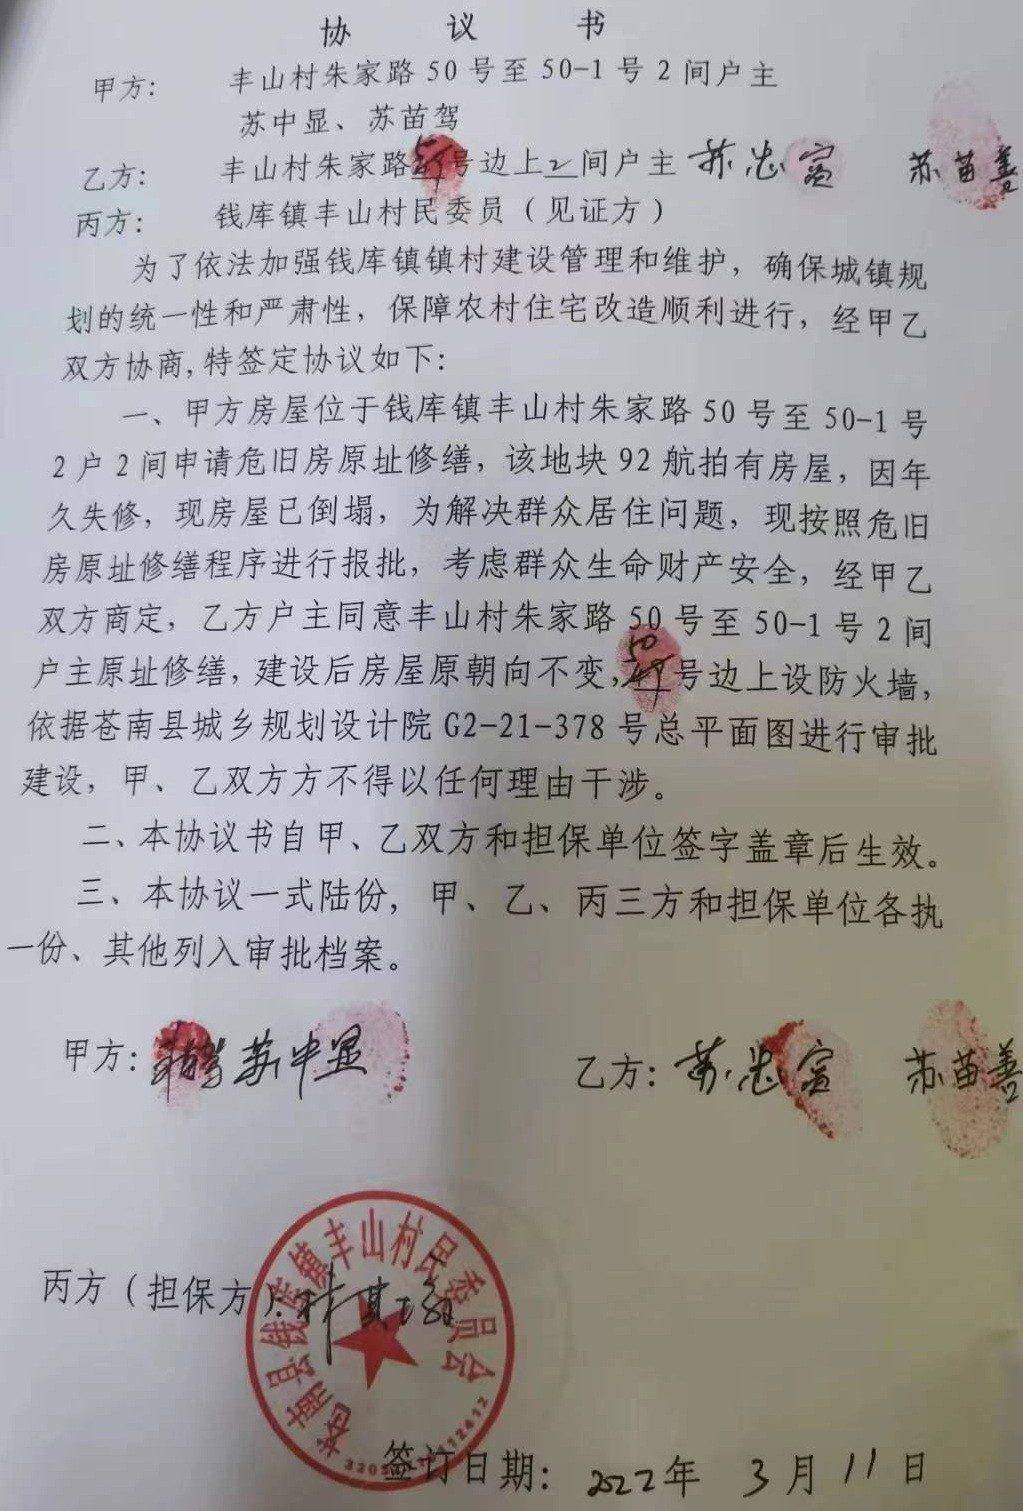 协 议 书
甲方： 丰山村朱家路 50 号至 50-1 号 2 间户主
苏中显、苏苗驾
乙方： 丰山村朱家路 号边上 2 间户主 苏忠富 苏苗善
丙方： 钱库镇丰山村民委员（见证方）
为了依法加强钱库镇镇村建设管理和维护，确保城镇规
划的统一性和严肃性，保障农村住宅改造顺利进行，经甲乙
双方协商,特签定协议如下：
一、甲方房屋位于钱库镇丰山村朱家路 50 号至 50-1 号
2 户 2 间申请危旧房原址修缮，该地块 92 航拍有房屋，因年
久失修，现房屋已倒塌，为解决群众居住问题，现按照危旧
房原址修缮程序进行报批，考虑群众生命财产安全，经甲乙
双方商定，乙方户主同意丰山村朱家路 50 号至 50-1 号 2 间
户主原址修缮，建设后房屋原朝向不变， 50 号边上设防火墙，
依据苍南县城乡规划设计院 G2-21-378 号总平面图进行审批
建设，甲、乙双方方不得以任何理由干涉。
二、本协议书自甲、乙双方和担保单位签字盖章后生效。
三、本协议一式陆份，甲、乙、丙三方和担保单位各执
一份、其他列入审批档案。
甲方： 苏中显 乙方：苏忠富 苏苗善
丙方（担保方）：
苍南县钱库镇丰山村民委员会
签订日期： 2022 年 3 月 11 日